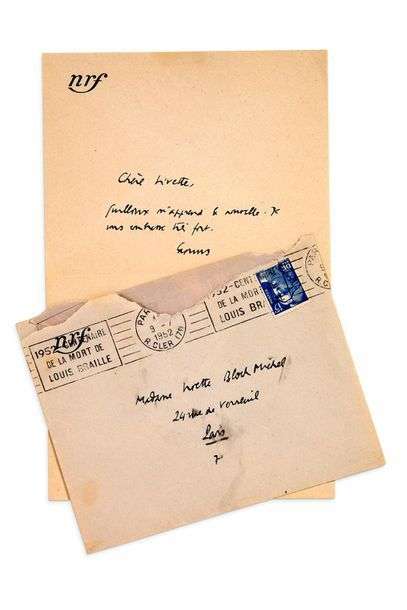 nrf
Chère Vivette,
Guilloux m'apprend la nouvelle. Je
vous embrasse très fort.
Camus
nrf
1952 CENTENAIRE
DE LA MORT DE
LOUIS BRAILLE
PAR
1952
R. CLER
1952-CENT
DE LA MORT
LOUIS BRA
Madame Vivette Bloch Michel
24 rue de Verneuil
Paris
7